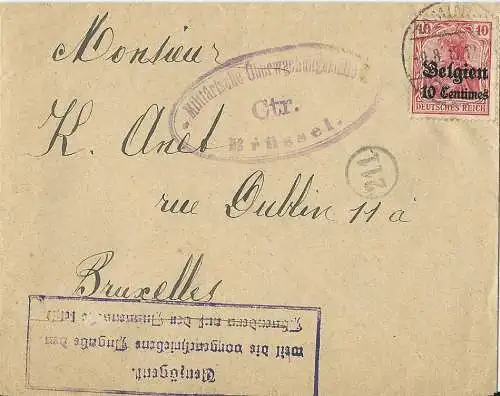 Monsieur
K. Anet
rue Dublin 11 à
Bruxelles
Militärische Überwachungsstelle
Ctr.
Brüssel.
10 10
Belgien
10 Centimes
DEUTSCHES REICH
211
Verzögert,
weil die vorgeschriebene Angabe des
Absenders auf der Aussenseite fehlt